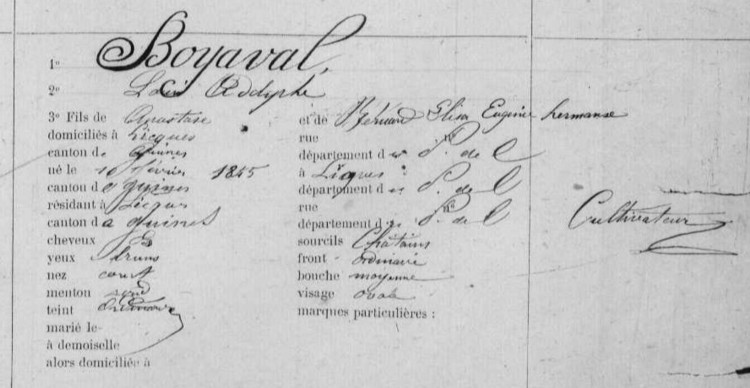 1º Boyaval,
2º Louis Adolphe
3º Fils de Anastase et de Eugénie hermanse
domiciliés à Licques rue
canton de Guines département du P. de C
né le 10 février 1845 à Licques
canton de Guines département du P. de C
résidant à Licques rue
canton de Guines département du P. de C
Cultivateur
cheveux sourcils Châtains
yeux bruns front ordinaire
nez court bouche moyenne
menton rond visage ovale
teint ordinaire marques particulières :
marié le
à demoiselle
alors domiciliée à